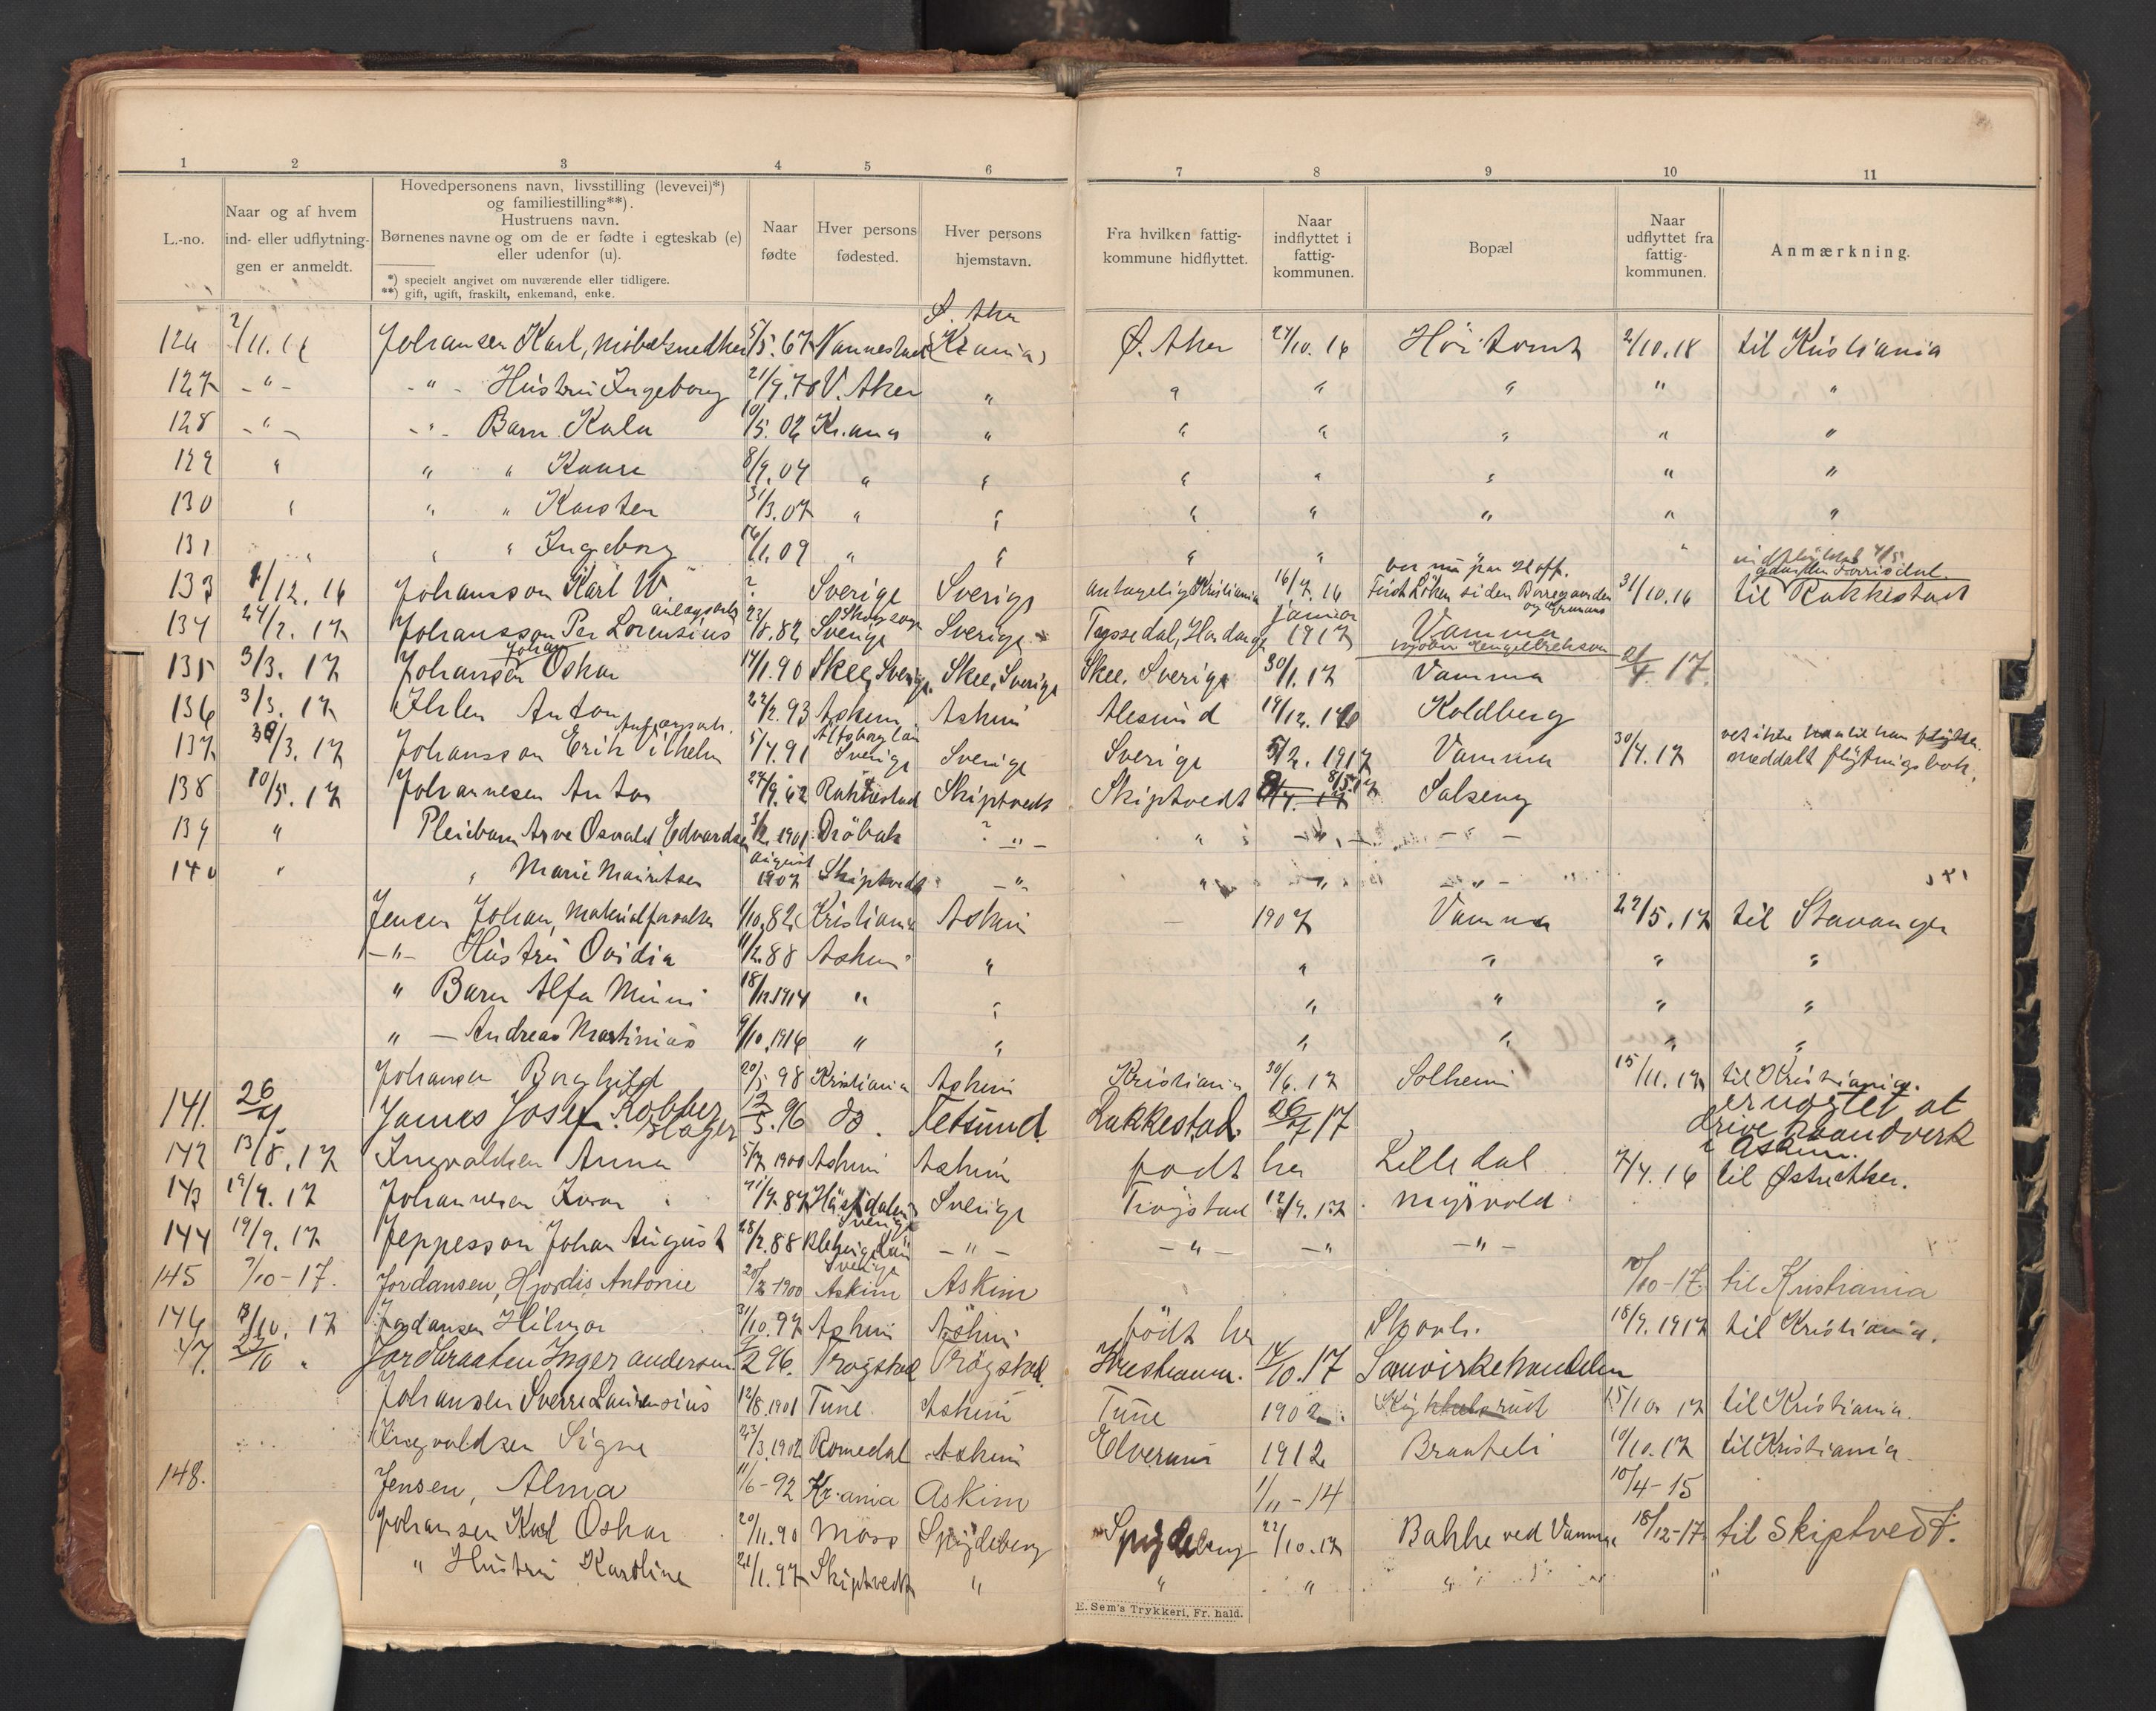 1 2 3 4 5 6 7 8 9 10 11
L.-no.
Naar og af hvem ind- eller udflytningen er anmeldt.
Hovedpersonens navn, livsstilling (levevei)*)
og familiestilling**).
Hustruens navn.
Børnenes navne og om de er fødte i egteskab (e)
eller udenfor (u).
*) specielt angivet om nuværende eller tidligere.
**) gift, ugift, fraskilt, enkemand, enke.
Naar fødte
Hver persons fødested.
Hver persons hjemstavn.
Fra hvilken fattigkommune hidflyttet.
Naar indflyttet i fattigkommunen.
Bopæl
Naar udflyttet fra fattigkommunen.
Anmærkning.
126 2/11.16 Johansen Karl, 5/5.67 Ø. Aker 27/10.16 2/10.18 til Kristiania
127 -"- -"- Hustru Ingeborg 21/9.70 V. Aker " " " " " "
128 -"- -"- Barn Kala 10/5.02 Kr.ania " " " " " "
129 " " " Kaare 8/9.04 " " " " " " "
130 " " " Karsten 31/3.07 " " " " " " "
131 " " " Ingeborg 16/1.09 " " " " "
133 1/12.16 Johansson Karl W. ? Sverige Sverige antagelig Kristiania 16/9.16 31/10.16 til Rakkestad
134 24/2.17 Johansson Per Lorensius 23/8.82 Sverige Sverige Tyssedal, Hardanger januar 1917 Vamma
135 3/3.17 Johansen Johan Oskar 14/1.90 Skee, Sverige. Skee, Sverige Skee, Sverige 30/1.17 Vamma 21/4 17.
136 3/3.17 Anton 22/2.93 Askim Askim Alesund Koldberg
137 30/3.17 Johansson Erik 5/4.91 Sverige Sverige Sverige 5/2.1917 Vamma 30/4.17 meddelt flytningsbok.
138 10/5.17 Johannesen Anton 27/9.62 Rakkestad Skiptvedt Skiptvedt 8/5.17 Salseng
139 " Pleiebarn Arve Osvald Edvardsen 3/2.1901 Drøbak ? -"- " -"- -"-
140 " " Marie Mauritsen august 1907 Skiptvedt -"- " " -"-
Jensen Johan, Materialforvalter 1/10.82 Kristiania Askim - 1907 Vamma 22/5.17 til Stavanger
-"- Hustru Ovidia 11/2.88 Askim " " " " "
" Barn Alfa Minni 18/12.1914 " " " " " "
" - Andreas Martinius 9/10.1916 " " " " " "
Johansen Borghild 20/5 98 Kristiania Askim Kristiania 30/6.17 Solheim 15/11.17 til Kristiania.
141. James Josef. Kobberslager 12/3.96 do. Fetsund. Rakkestad. 26/7 17 er nægtet at drive haandverk i Askim.
142 13/8.17 Ingvaldsen Anna 5/7 1900 Askim Askim født her Lilledal 7/4.16 til Østre Aker.
143 19/9.17 Johannesen Ivar Sverige Trøgstad 12/9.17 Myrvold
144 19/9.17 Jeppesson Johan August 28/2.88 Blekinge Län Sverige -"- -"- -"- -"-
145 9/10-17. Jordansen, Hjordis Antonie 20/2-1900 Askim Askim 10/10-17. til Kristiania
146 13/10.17 Jordansen Hilmar 31/10.97 Askim Askim født her 18/9.1917 til Kristiania.
47. 23/10 " Jordbraaten Inger Andersen 2 96. Trøgstad Trøgstad. Kristiania. 14/10.17 Samvirkehandelen
Johansen Sverre Laurensius 12/8.1901 Tune Askim Tune 1902 15/10.17 til Kristiania.
Ingvaldsen Signe 23/3.1902 Romedal Askim Elverum 1912 Braateli 10/10.17 til Kristiania.
148. Jensen, Alma 11/6-92 Kr.ania Askim 1/11-14 10/4-15
Johansen Karl Oskar 20/11.90 Moss Spydeberg Spydeberg 22/10.17 Bakke ved Vamma 18/12-17. til Skiptvedt.
" Hustru Karoline 21/1.97 Skiptvedt " " " " "
E. Sem's Trykkeri, Fr. hald.